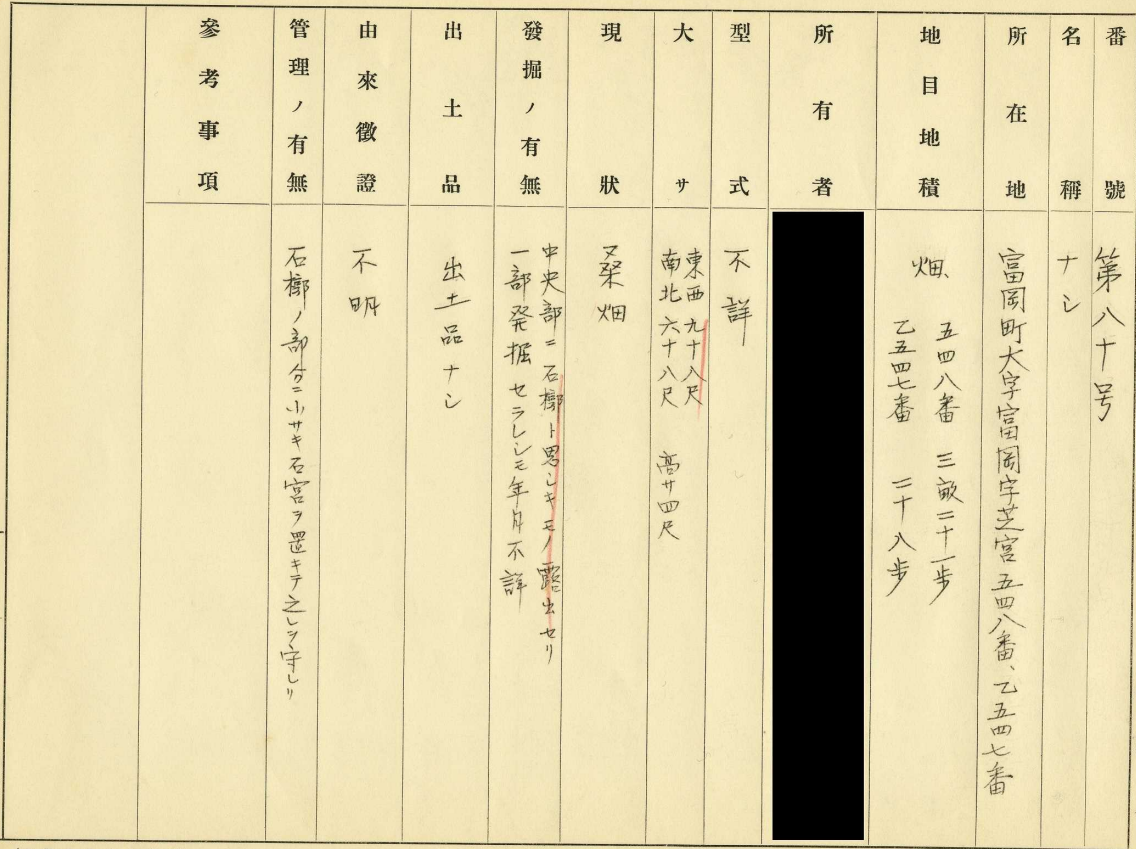 番號
第八十号
名稱
ナシ
所在地
富岡町大字富岡字芝宮五四八番、乙五四七番
地目地積
畑
五四八番 三畝二十一歩
乙五四七番 二十八歩
所有者
型式
不詳
大サ
東西 九十八尺
南北 六十八尺 高サ四尺
現狀
桑畑
發掘ノ有無
中央部ニ石槨ト思シキモノ露出セリ
一部発掘セラレシモ年月不詳
出土品
出土品ナシ
由來徵證
不明
管理ノ有無
石槨ノ部分ニ小サキ石宮ヲ置キテ之レヲ守レリ
參考事項